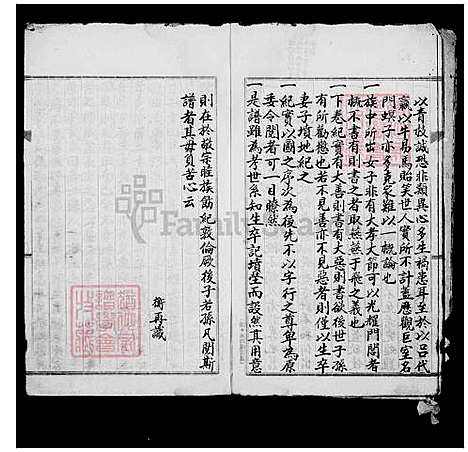 以青枝誠恐非類異心多生禍患耳至於以呂代
嬴以牛易馬貽笑世人實所不計蓋應觀巨室名
門螟子亦多克家難以一概論也
一族中所出女子非有大孝大節可以光耀門閭者
概不書有則書之者取燕燕于飛之義也
一下卷紀實有大善則書有大惡則書欲後世子孫
有所勸懲也若不見善亦不見惡者則僅以生卒
妻子墳地紀之
一紀實以圖之次序為後先不以字行之尊卑為原
委令閱者可一目瞭然
一是譜雖為考世系知生卒記墳塋而設然其用意
則在於敬宗睦族飭紀敦倫欲後子若孫凡閱斯
譜者其毋負苦心云
衡再識
FamilySearch